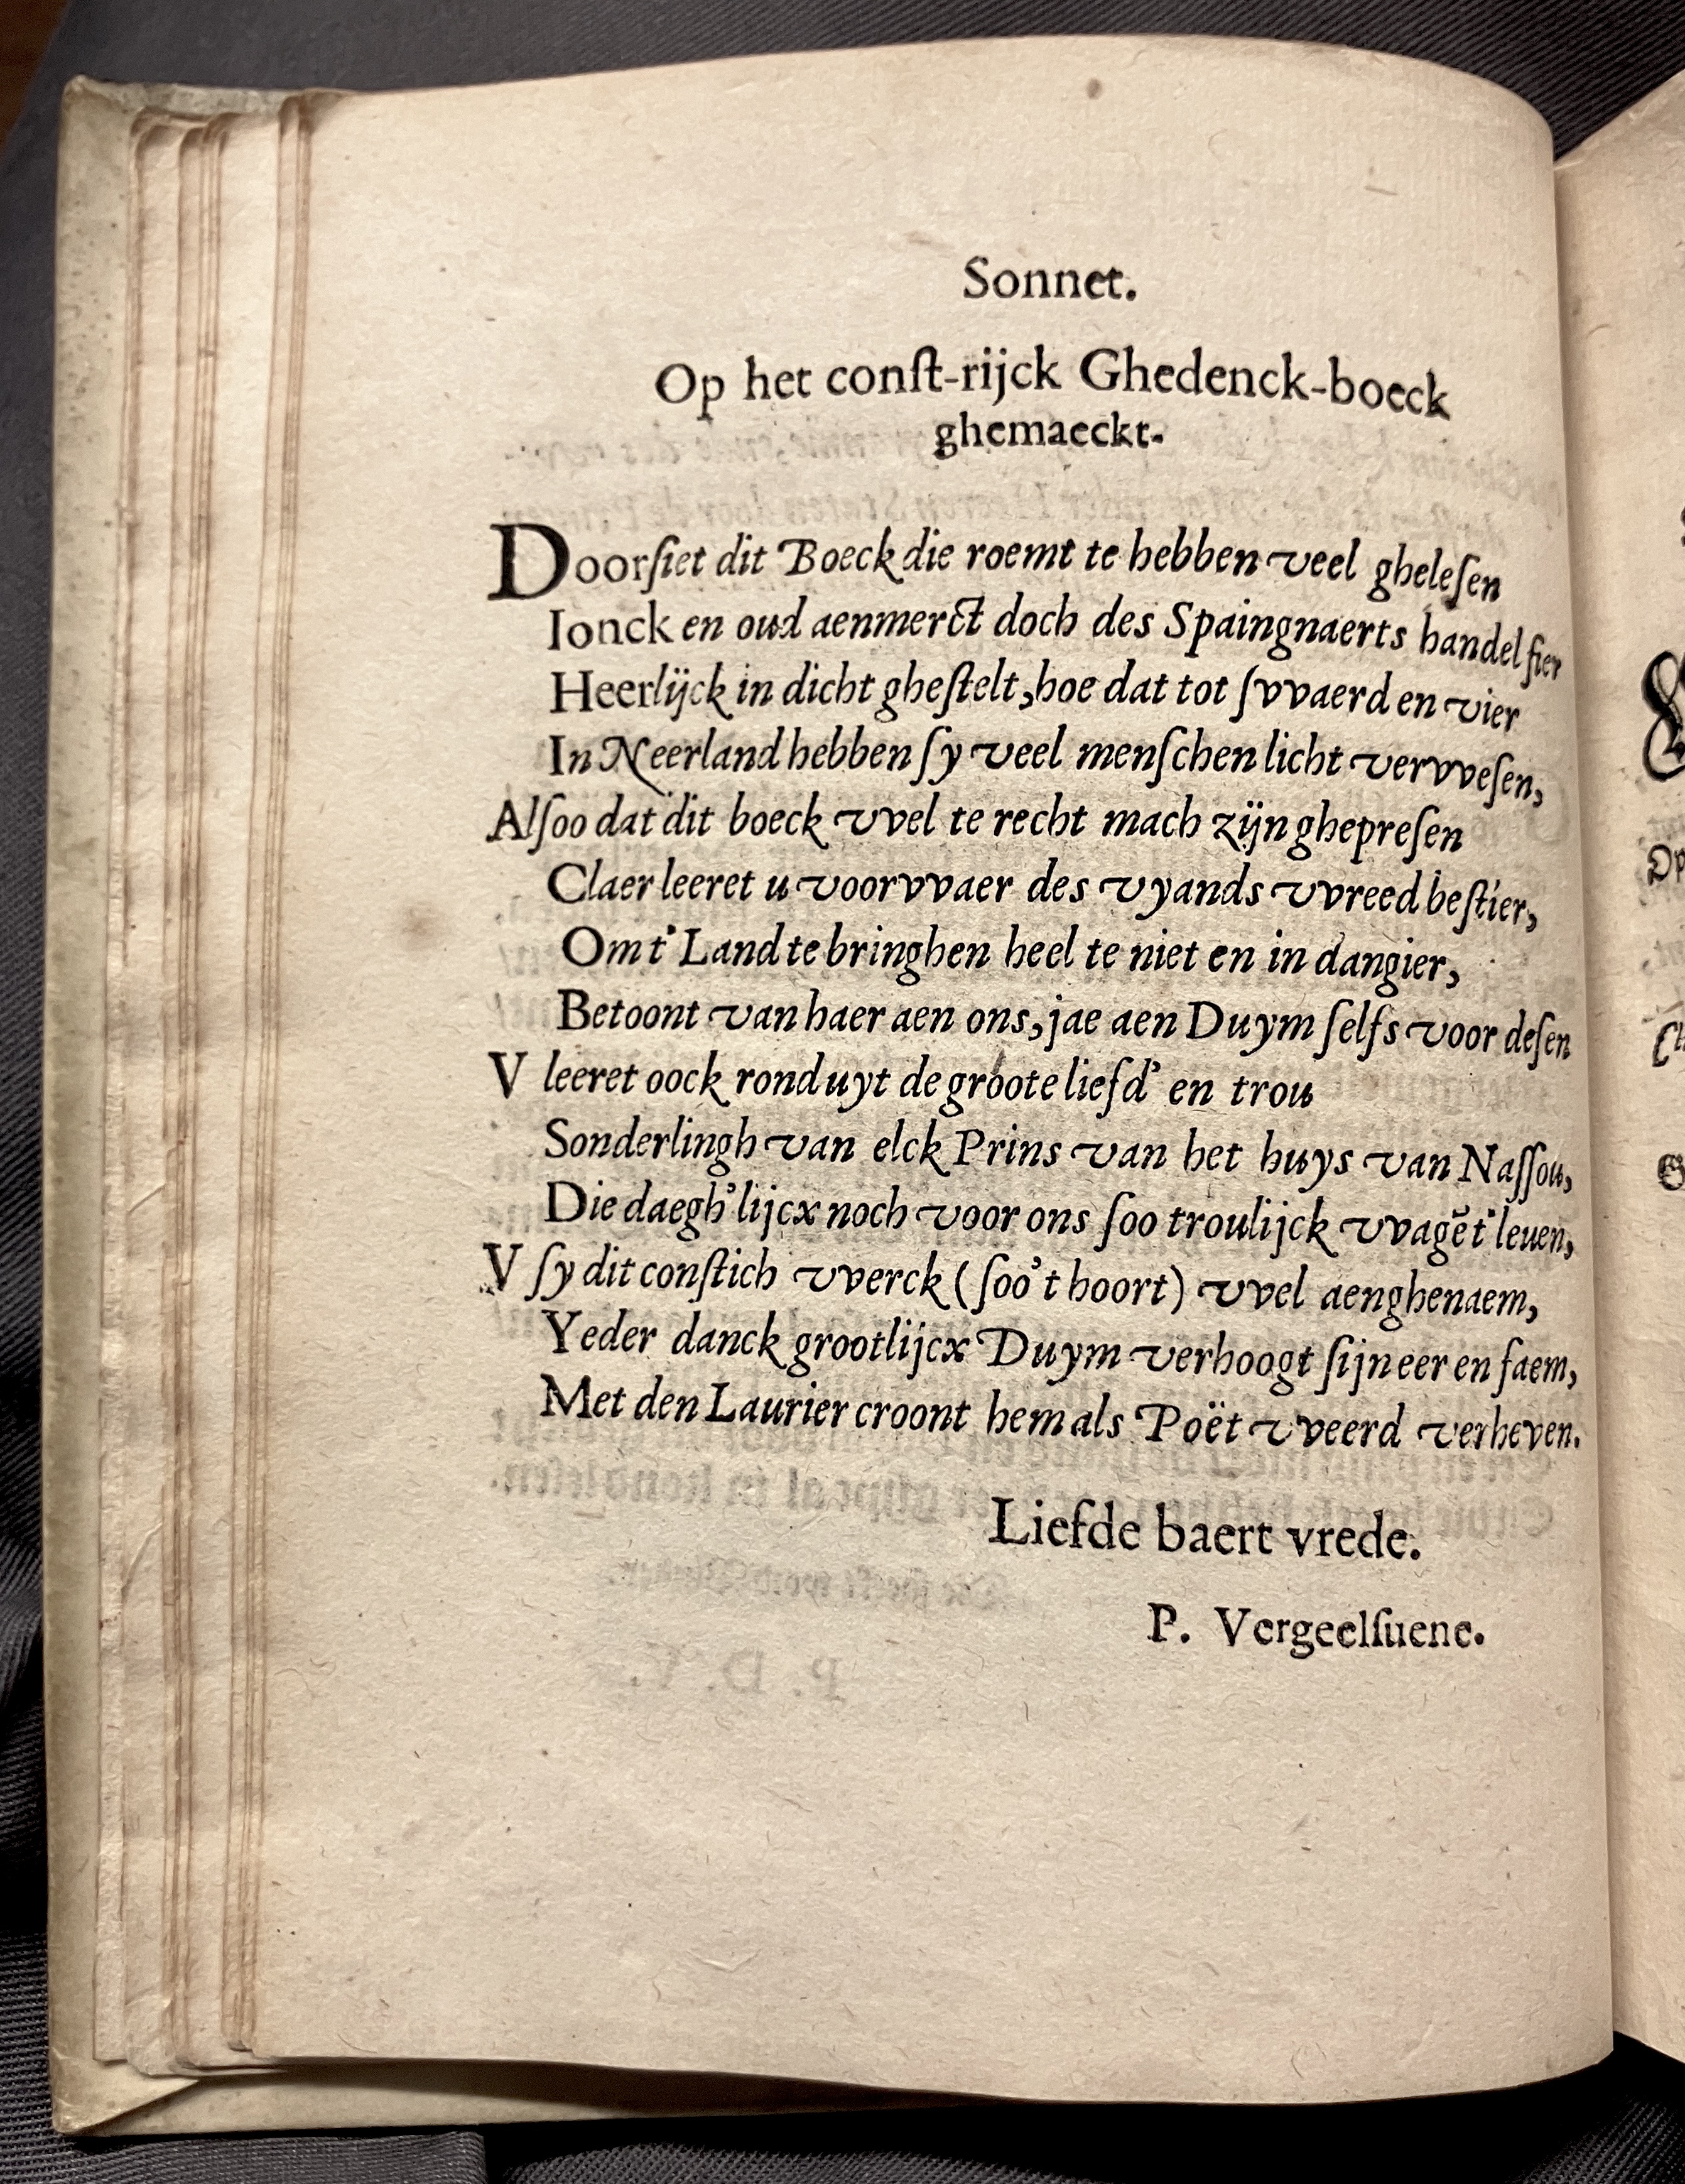 Sonnet.
Op het conſt-rijck Ghedenck-boeck
ghemaeckt.
Doorſiet dit Boeck die roemt te hebben veel gheleſen
Ionck en oud aenmerct doch des Spaingnaerts handel fier
Heerlijck in dicht gheſtelt, hoe dat tot ſvvaerd en vier
In Neerland hebben ſy veel menſchen licht vervveſen,
Alſoo dat dit boeck vvel te recht mach zijn ghepreſen
Claer leeret u voorvvaer des vyands vvreed beſtier,
Om t' Land te bringhen heel te niet en in dangier,
Betoont van haer aen ons, jae aen Duym ſelfs voor deſen
V leeret oock rond uyt de groote liefd' en trou
Sonderlingh van elck Prins van het huys van Naſſou,
Die daegh'lijcx noch voor ons ſoo troulijck vvagẽ t' leuen,
V ſy dit conſtich vverck (ſoo't hoort) vvel aenghenaem,
Yeder danck grootlijcx Duym verhoogt ſijn eer en faem,
Met den Laurier croont hem als Poët vveerd verheven.
Liefde baert vrede.
P. Vergeelſuene.